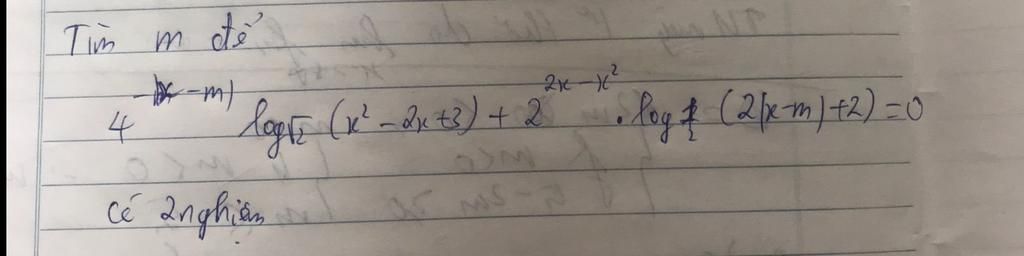 Tìm m để
4^{-|x-m|} log_{√2} (x² - 2x + 3) + 2^{2x - x²} . log_{1/2} (2|x-m| + 2) = 0
có 2 nghiệm